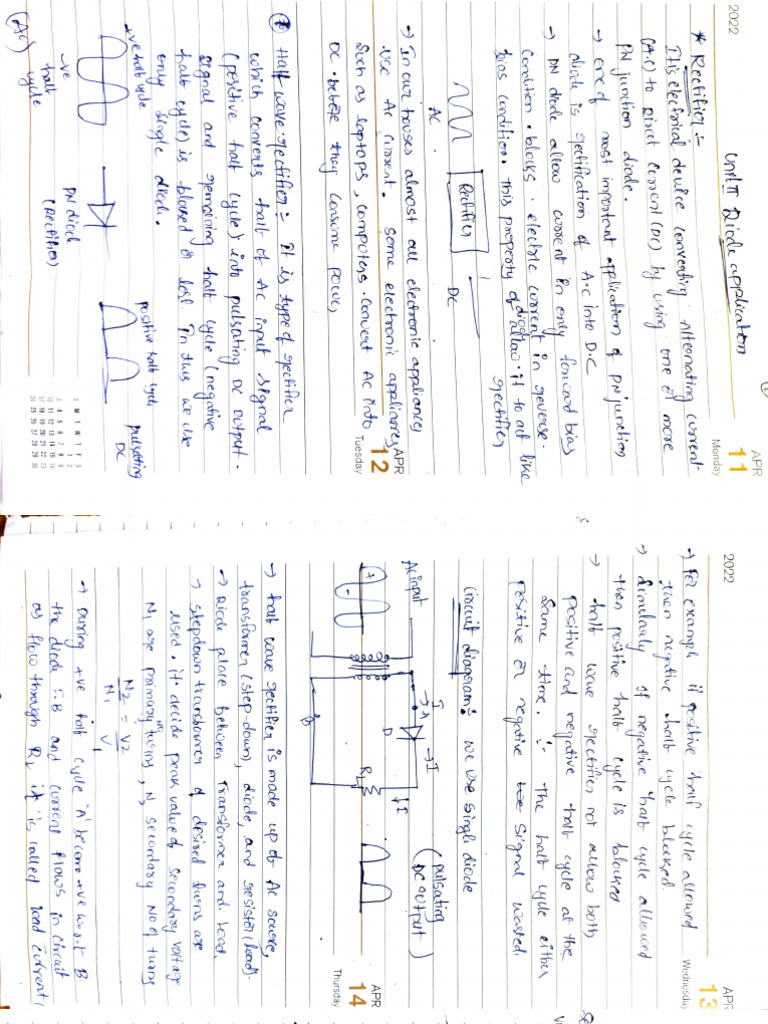 2022
APR
11
Monday
Unit II Diode application
* Rectifier :-
It is electrical device converting Alternating current
(A.C) to Direct current (DC) by using one or more
PN junction diode.
→ one of most important application of PN junction
diode is rectification of A.C into D.C
→ PN diode allow current in only forward bias
condition. blocks electric current in reverse.
bias condition. this property of diode allow it to act like
rectifier
AC
Rectifier
DC
→ In our houses almost all electronic appliances
use Ac current. some electronic appliances
such as laptops, computers. convert AC into
DC. before they consume power,
APR
12
Tuesday
Half wave rectifier :- It is type of rectifier
which converts half of AC input signal
(positive half cycle) into pulsating DC output.
signal and remaining half cycle (negative
half cycle) is blocked or lost. In this we use
only single diode.
+ve half cycle
-ve half cycle
(AC)
PN diode
(rectifier)
positive half cycle
pulsating
DC
S M T W T F S
2022
APR
13
Wednesday
→ For example if positive half cycle allowed
then negative half cycle blocked.
→ Similarly if negative half cycle allowed
then positive half cycle is blocked
→ half wave rectifier not allow both
positive and negative half cycle at the
same time. ∴ the half cycle either
positive or negative signal wasted.
circuit diagram :- we use single diode
AC input
+
A
I
D
I
RL
I
B
(pulsating
DC output)
APR
14
Thursday
→ half wave rectifier is made up of Ac source,
transformer (step-down), diode, and resistor (load).
→ Diode place between transformer and load.
→ stepdown transformer of desired turns are
used. it decide peak value of secondary voltage
N1 are primary turns, N2 secondary No of turns
N2/N1 = V2/V1
→ During +ve half cycle 'A' become +ve w.r.t B
the diode F.B and current flows in circuit
as flow through RL it is called load current